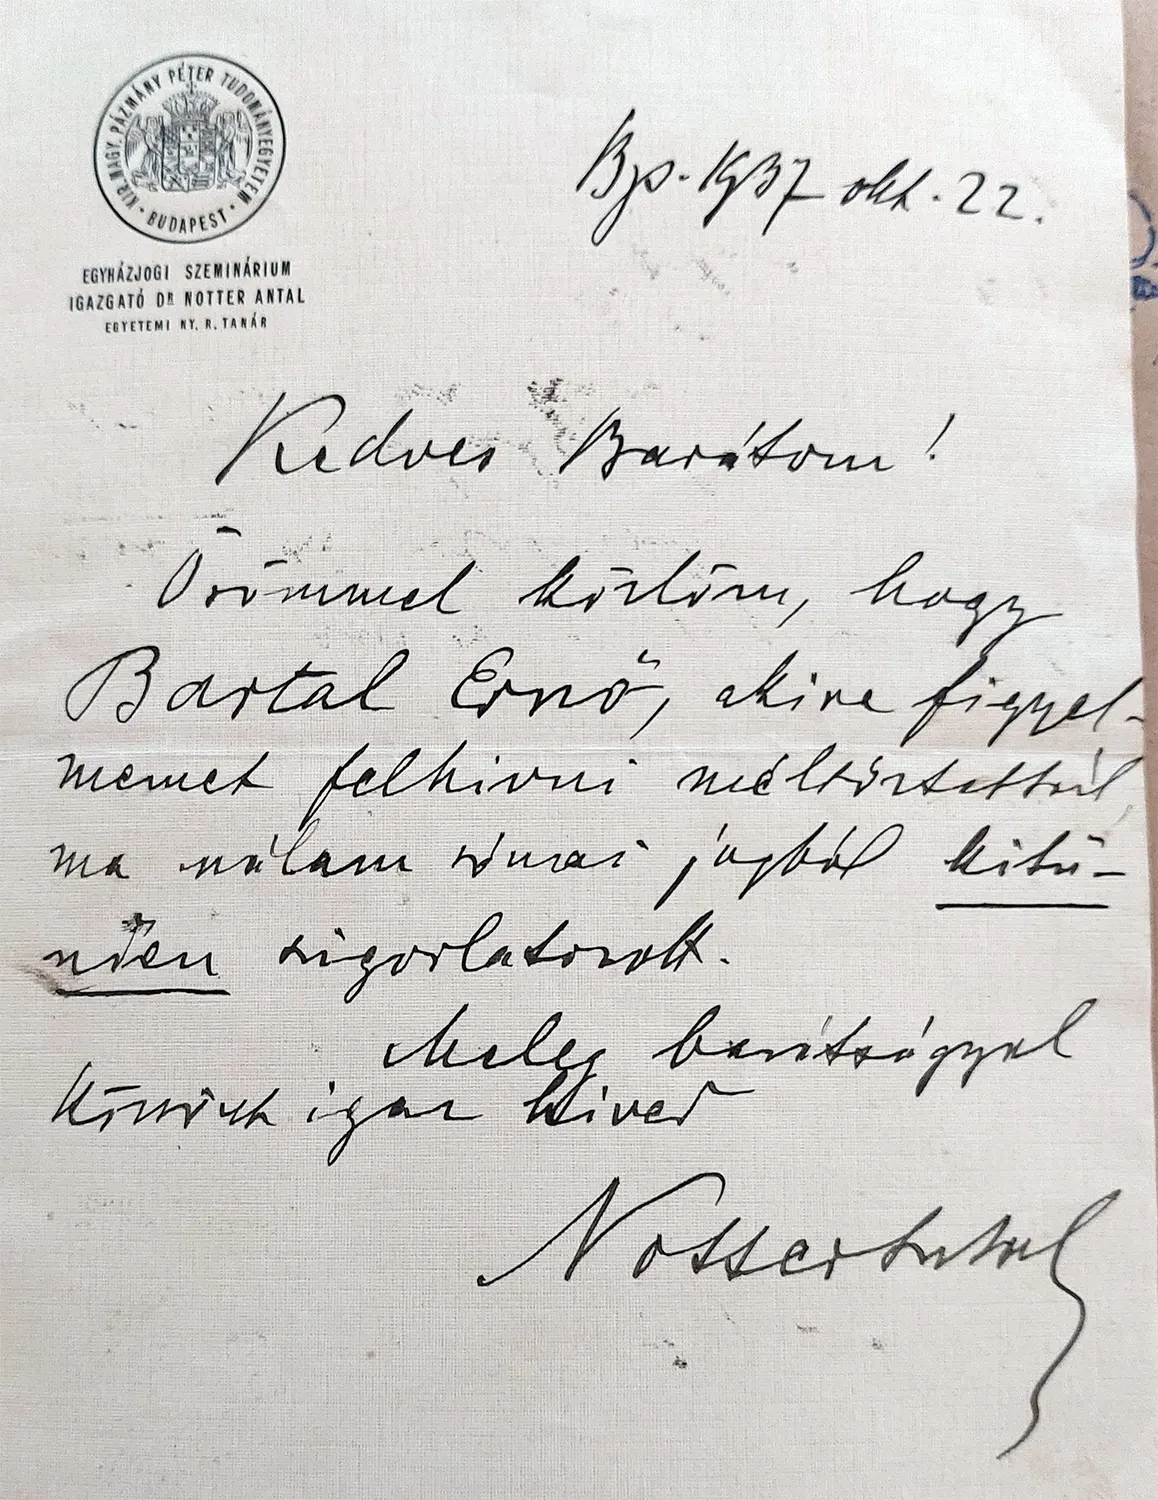 KIR. MAGY. PÁZMÁNY PÉTER TUDOMÁNYEGYETEM
• BUDAPEST •
EGYHÁZJOGI SZEMINÁRIUM
IGAZGATÓ DR NOTTER ANTAL
EGYETEMI NY. R. TANÁR
Bp. 1937 okt. 22.
Kedves Barátom!
Örömmel közlöm, hogy
Bartal Ernő, akire figyel-
memet felhivni méltóztattál,
ma nálam római jogból kitü-
nően szigorlatozott.
Meleg barátsággal
köszönt igaz hived
Notter Antal